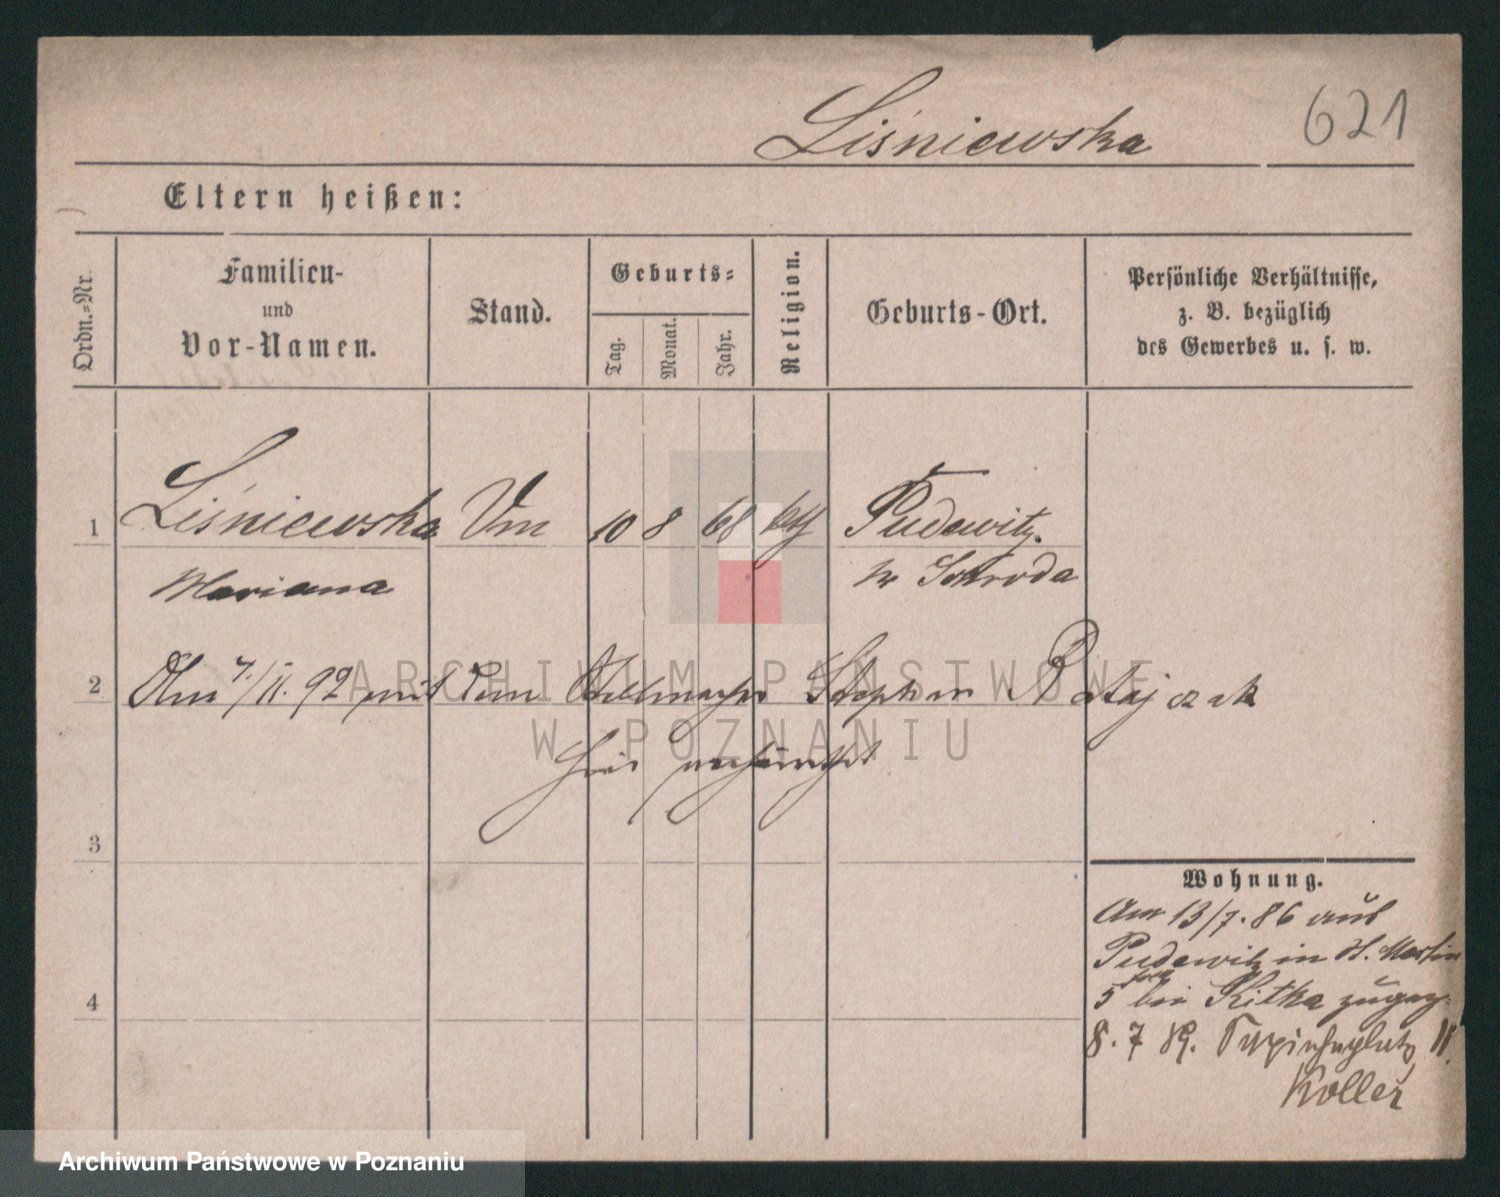 Liśniewska 621
Eltern heißen:
Ordn.-Nr.
Familien-
und
Vor-Namen.
Stand.
Geburts-
Tag.
Monat.
Jahr.
Religion.
Geburts-Ort.
Persönliche Verhältnisse,
z. B. bezüglich
des Gewerbes u. s. w.
1 Liśniewska 10 8 68 kth Pudewitz.
Mariana Kr Schroda
2 Am 7/11. 92 mit dem Stellmacher Stephan Ratajczak
hier verheirathet
3
4
Wohnung.
Am 13/7. 86 aus
Pudewitz in St. Martin
5 bei Kitka zugez.
8. 7 89. Sapiehaplatz 11.
Koller
ARCHIWUM PAŃSTWOWE
W POZNANIU
Archiwum Państwowe w Poznaniu